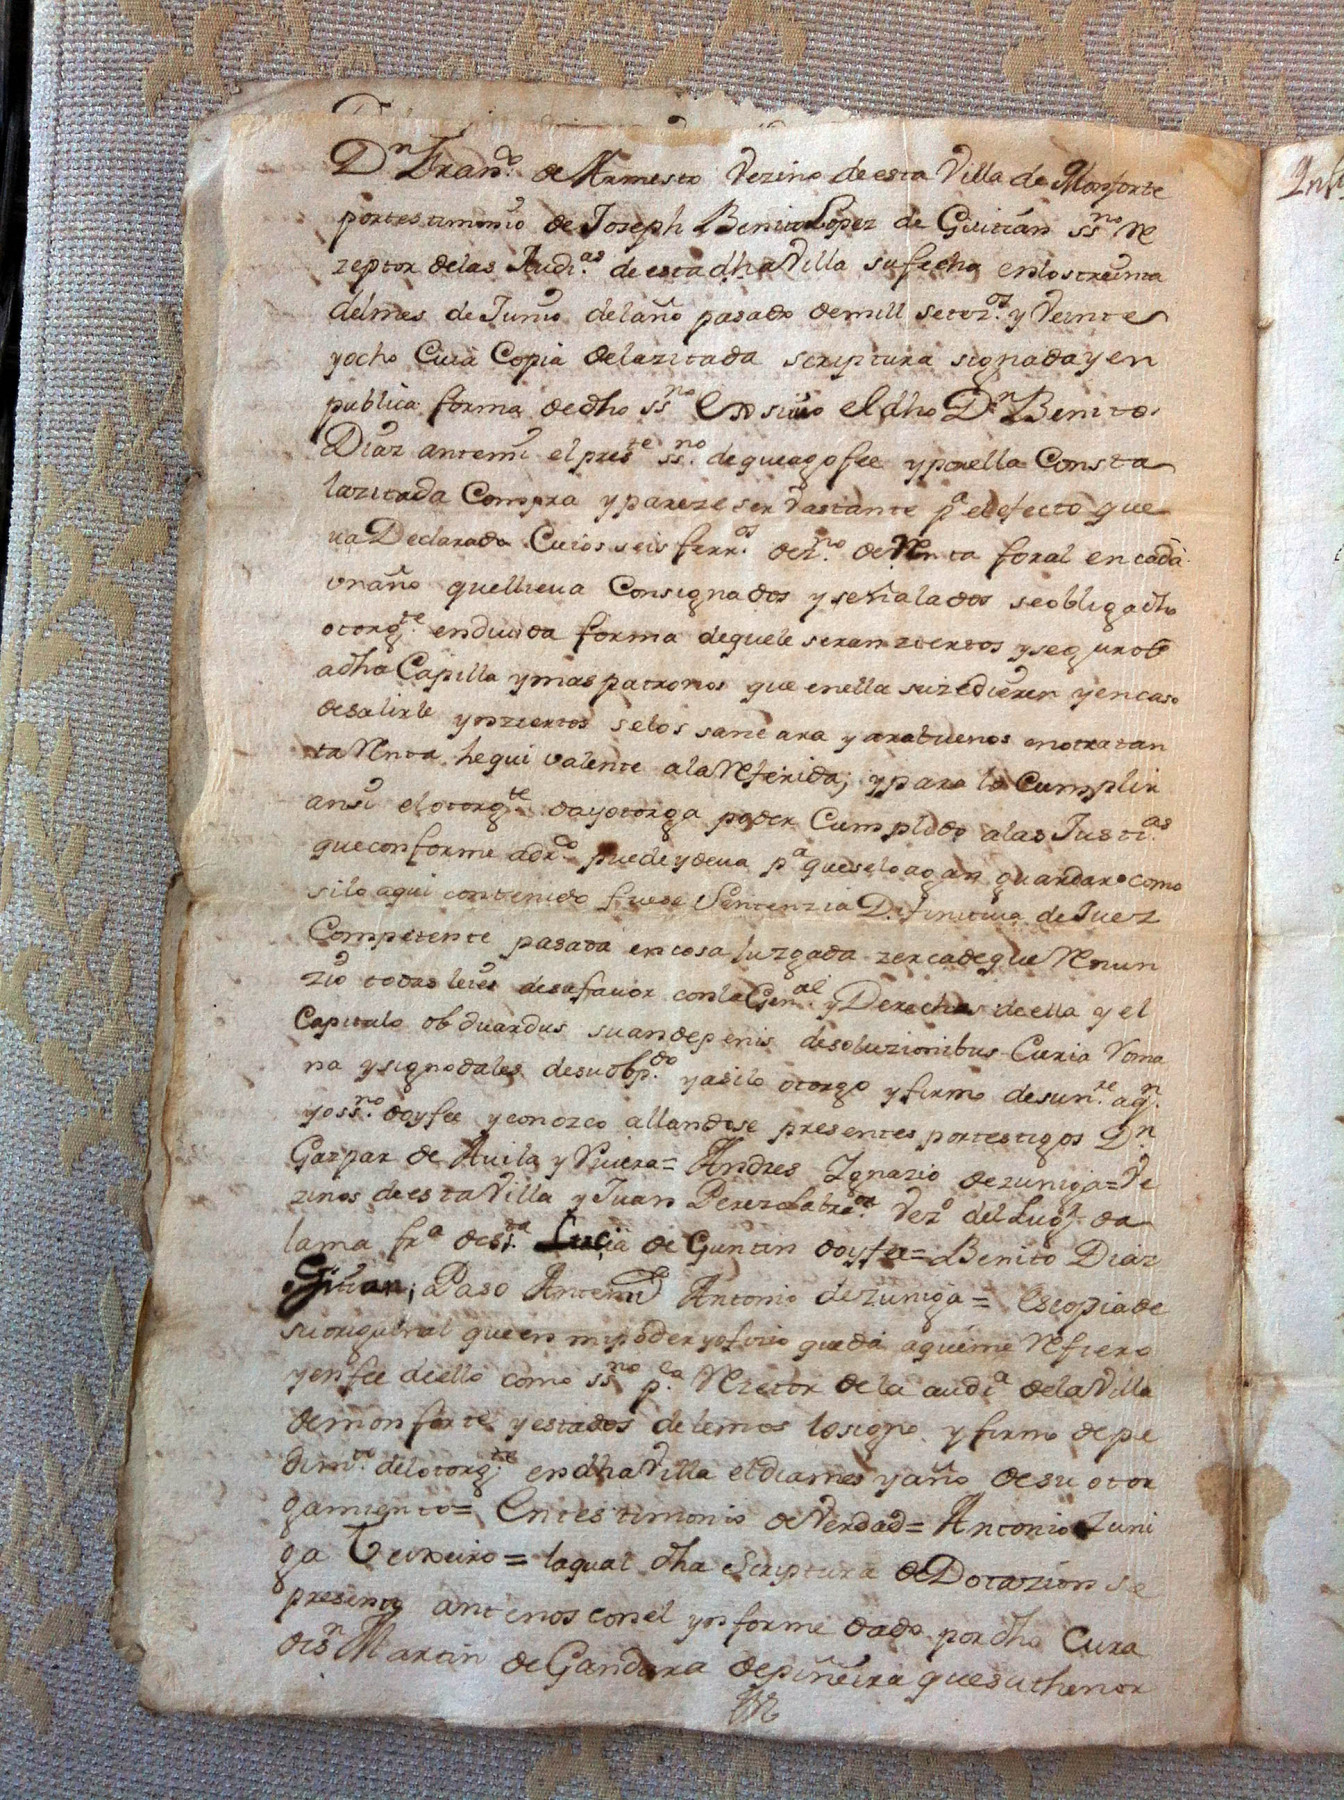 Dn Franco de Armesto Vezino de esta Villa de Monforte
portestimonio de Joseph Benito Lopez de Guitian ssno Re
zeptor delas Audias de esta dha Villa sufecha enlostreinta
delmes de Junio delaño pasado demill setozos y Veinte
yocho Cuia Copia delazitada scriptura signada y en
publica forma dedho ssno Exsivio eldho Dn Benito
Diaz antemi el preste ssno dequeagofee yporella Consta
lazitada Compra y pareze ser Vastante pa elefecto que
va Declarado Cuios seis ferros dezno de Renta foral en cada
vnaño quelleua Consignados y señalados seobliga dho
otorgte endeuida forma dequele seran ziertos y seguros
adha Capilla ymas patronos que enella suzedieren yencaso
desalirle ynziertos selos saneara y arabuenos enotra tan
ta Renta hequi valente ala Referida; ypara lo Cumplir
ansi elotorgte dayotorga poder Cumplido alas Justias
queconforme adro puedeydeua pa queseloagan guardar como
silo aqui contenido fuese Sentenzia Difinitiua de Juez
Competente pasada encosa Juzgada zercadeque Renun
zio todas leies desufauor conla Genal y Derechos deella y el
Capitulo obduardus suandepenis desoluzionibus Curia Roma
na ysignodales desuobpdo yasilo otorgo y firmo desunte aqn
yo ssno doyfee y conozco allandose presentes portestigos Dn
Gaspar de Auila y Riuera= Andres Ygnazio dezuniga= Ve
zinos de esta Villa y Juan Perez Vezo del Lugr da
lama fra desta Lucia de Guntin doyfee= Benito Diaz
Guitian; Paso Antemi Antonio de Zuniga = Escopia de
suoriginal queen mipoder yofizio queda aqueme Refiero
yenfee deello como ssno pco Rezetor dela audia delaVilla
demonforte yestados de lemos losigno y firmo depe
dimto delotorgte endhaVilla eldiames yaño desu otor
gamiento= Entestimonio deVerdad= Antonio Zuni
ga Teixeiro= laqual dha Scriptura de Dotazion se
presento antenos conel ynforme dado pordho Cura
desn Martin de Gandara depiñeira quesuthenor